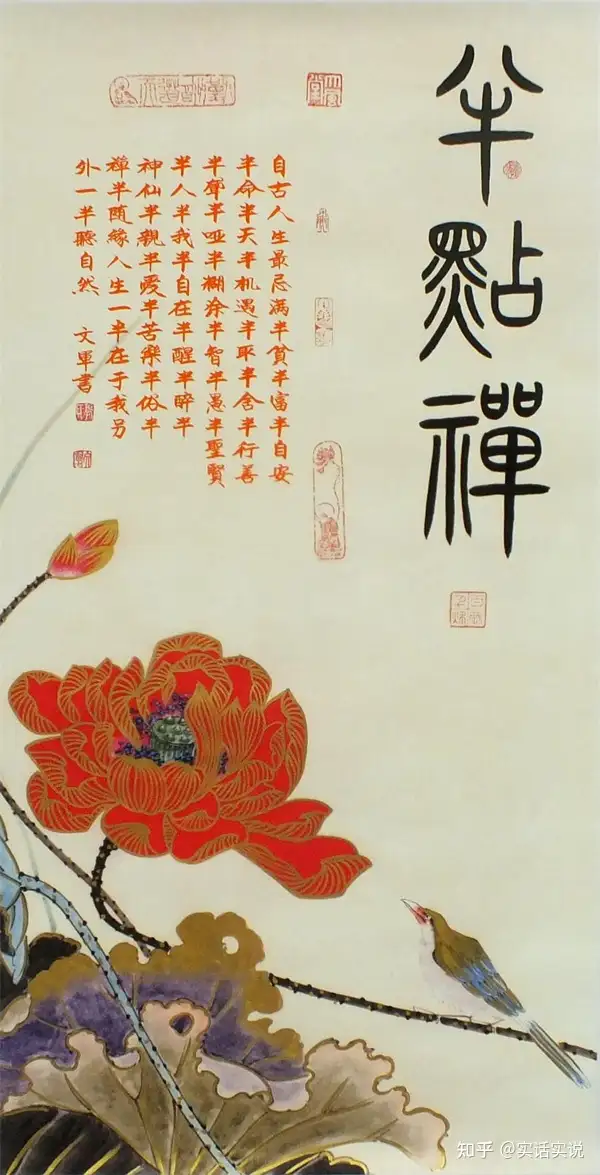 半點禪
自古人生最忌满半貧半富半自安
半命半天半机遇半取半舍半行善
半聾半哑半糊涂半智半愚半聖賢
半人半我半自在半醒半醉半
神仙半親半愛半苦樂半俗半
禪半随緣人生一半在于我另
外一半聽自然 文軍書
知乎 @实话实说